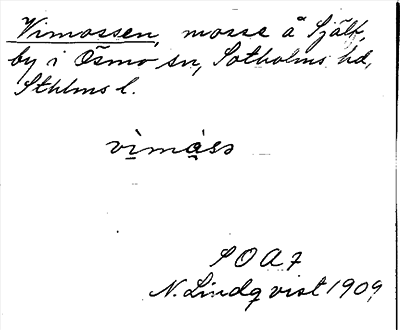 Vimossen, mosse å Själf,
by i Ösmo sn, Sotholms hd,
Sthlms l.
vimåss
SOA 7
N. Lindqvist 1909